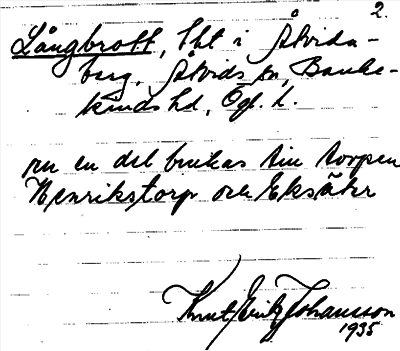 2.
Långbrott, tht i Åtvida-
berg, Åtvids sn, Banke-
kinds hd, Ögl. l.
nu en del brukas till torpen
Henrikstorp och Eksäter
Knut Fritz Johansson
1935